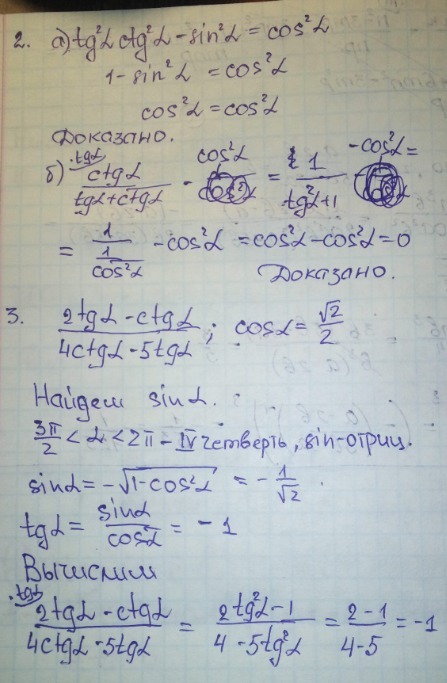 2. а) tg²α ctg²α - sin²α = cos²α
1 - sin²α = cos²α
cos²α = cos²α
Доказано.
б) ·tgα ctgα / (tgα + ctgα) - cos²α = 1 / (tg²α + 1) - cos²α =
= 1 / (1 / cos²α) - cos²α = cos²α - cos²α = 0
Доказано.
3. (2tgα - ctgα) / (4ctgα - 5tgα) ; cosα = √2 / 2
Найдем sinα.
3π/2 < α < 2π - IV четверть, sin-отриц.
sinα = -√(1-cos²α) = - 1/√2 .
tgα = sinα / cosα = - 1
Вычислим
·tgα (2tgα - ctgα) / (4ctgα - 5tgα) = (2tg²α - 1) / (4 - 5tg²α) = (2 - 1) / (4 - 5) = -1